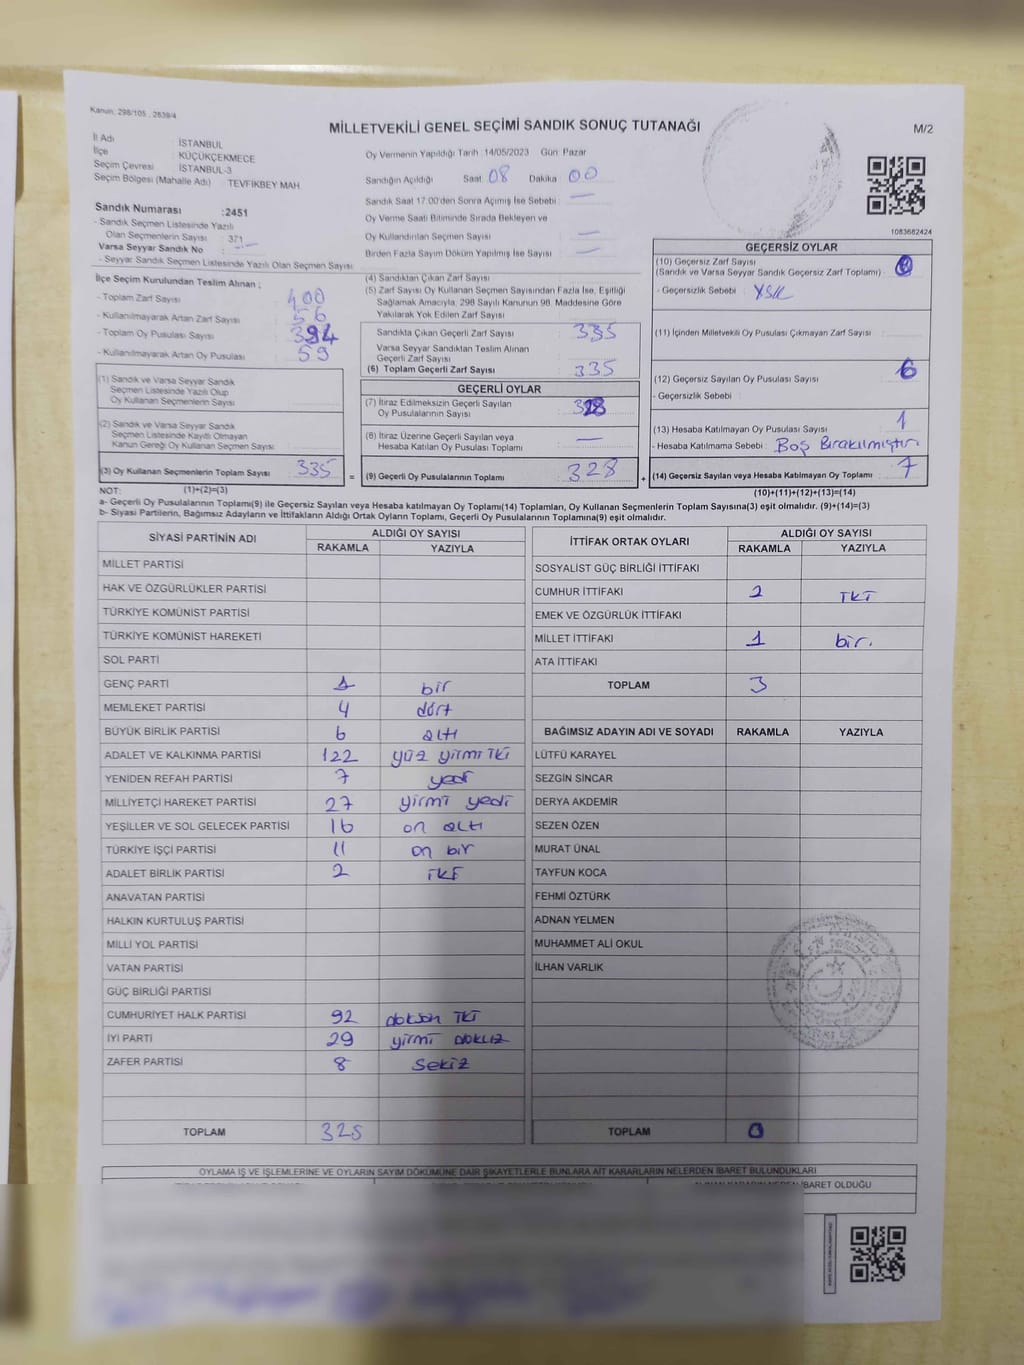 Kanun: 298/105 , 2839/4
MİLLETVEKİLİ GENEL SEÇİMİ SANDIK SONUÇ TUTANAĞI
M/2
İl Adı : İSTANBUL
İlçe : KÜÇÜKÇEKMECE
Seçim Çevresi : İSTANBUL-3
Seçim Bölgesi (Mahalle Adı) : TEVFİKBEY MAH
Oy Vermenin Yapıldığı Tarih :14/05/2023 Gün: Pazar
Sandığın Açıldığı Saat 08 Dakika 00
Sandık Saat 17.00'den Sonra Açılmış İse Sebebi : —
Oy Verme Saati Bitiminde Sırada Bekleyen ve
Oy Kullandırılan Seçmen Sayısı : —
Birden Fazla Sayım Döküm Yapılmış İse Sayısı : —
1083682424
Sandık Numarası :2451
- Sandık Seçmen Listesinde Yazılı
Olan Seçmenlerin Sayısı : 371
Varsa Seyyar Sandık No : —
- Seyyar Sandık Seçmen Listesinde Yazılı Olan Seçmen Sayısı :
İlçe Seçim Kurulundan Teslim Alınan ;
- Toplam Zarf Sayısı : 400
- Kullanılmayarak Artan Zarf Sayısı : 56
- Toplam Oy Pusulası Sayısı : 394
- Kullanılmayarak Artan Oy Pusulası : 59
(1) Sandık ve Varsa Seyyar Sandık
Seçmen Listesinde Yazılı Olup
Oy Kullanan Seçmenlerin Sayısı :
(2) Sandık ve Varsa Seyyar Sandık
Seçmen Listesinde Kayıtlı Olmayan
Kanun Gereği Oy Kullanan Seçmen Sayısı :
(3) Oy Kullanan Seçmenlerin Toplam Sayısı : 335
(4) Sandıktan Çıkan Zarf Sayısı
(5) Zarf Sayısı Oy Kullanan Seçmen Sayısından Fazla İse, Eşitliği
Sağlamak Amacıyla, 298 Sayılı Kanunun 98. Maddesine Göre
Yakılarak Yok Edilen Zarf Sayısı :
Sandıkta Çıkan Geçerli Zarf Sayısı : 335
Varsa Seyyar Sandıktan Teslim Alınan
Geçerli Zarf Sayısı :
(6) Toplam Geçerli Zarf Sayısı : 335
GEÇERLİ OYLAR
(7) İtiraz Edilmeksizin Geçerli Sayılan
Oy Pusulalarının Sayısı : 328
(8) İtiraz Üzerine Geçerli Sayılan veya
Hesaba Katılan Oy Pusulası Toplamı : —
= (9) Geçerli Oy Pusulalarının Toplamı : 328
GEÇERSİZ OYLAR
(10) Geçersiz Zarf Sayısı
(Sandık ve Varsa Seyyar Sandık Geçersiz Zarf Toplamı) : 0
- Geçersizlik Sebebi : YSK
(11) İçinden Milletvekili Oy Pusulası Çıkmayan Zarf Sayısı :
(12) Geçersiz Sayılan Oy Pusulası Sayısı : 6
- Geçersizlik Sebebi :
(13) Hesaba Katılmayan Oy Pusulası Sayısı : 1
- Hesaba Katılmama Sebebi : Boş Bırakılmıştır
+ (14) Geçersiz Sayılan veya Hesaba Katılmayan Oy Toplamı : 7
NOT: (1)+(2)=(3)
(10)+(11)+(12)+(13)=(14)
a- Geçerli Oy Pusulalarının Toplamı(9) ile Geçersiz Sayılan veya Hesaba katılmayan Oy Toplamı(14) Toplamları, Oy Kullanan Seçmenlerin Toplam Sayısına(3) eşit olmalıdır. (9)+(14)=(3)
b- Siyasi Partilerin, Bağımsız Adayların ve İttifakların Aldığı Ortak Oyların Toplamı, Geçerli Oy Pusulalarının Toplamına(9) eşit olmalıdır.
SİYASİ PARTİNİN ADI ALDIĞI OY SAYISI
RAKAMLA YAZIYLA
MİLLET PARTİSİ
HAK VE ÖZGÜRLÜKLER PARTİSİ
TÜRKİYE KOMÜNİST PARTİSİ
TÜRKİYE KOMÜNİST HAREKETİ
SOL PARTİ
GENÇ PARTİ 1 bir
MEMLEKET PARTİSİ 4 dört
BÜYÜK BİRLİK PARTİSİ 6 altı
ADALET VE KALKINMA PARTİSİ 122 yüz yirmi iki
YENİDEN REFAH PARTİSİ 7 yedi
MİLLİYETÇİ HAREKET PARTİSİ 27 yirmi yedi
YEŞİLLER VE SOL GELECEK PARTİSİ 16 on altı
TÜRKİYE İŞÇİ PARTİSİ 11 on bir
ADALET BİRLİK PARTİSİ 2 iki
ANAVATAN PARTİSİ
HALKIN KURTULUŞ PARTİSİ
MİLLİ YOL PARTİSİ
VATAN PARTİSİ
GÜÇ BİRLİĞİ PARTİSİ
CUMHURİYET HALK PARTİSİ 92 doksan iki
İYİ PARTİ 29 yirmi dokuz
ZAFER PARTİSİ 8 sekiz
TOPLAM 325
İTTİFAK ORTAK OYLARI ALDIĞI OY SAYISI
RAKAMLA YAZIYLA
SOSYALİST GÜÇ BİRLİĞİ İTTİFAKI
CUMHUR İTTİFAKI 2 iki
EMEK VE ÖZGÜRLÜK İTTİFAKI
MİLLET İTTİFAKI 1 bir.
ATA İTTİFAKI
TOPLAM 3
BAĞIMSIZ ADAYIN ADI VE SOYADI RAKAMLA YAZIYLA
LÜTFÜ KARAYEL
SEZGİN SİNCAR
DERYA AKDEMİR
SEZEN ÖZEN
MURAT ÜNAL
TAYFUN KOCA
FEHMİ ÖZTÜRK
ADNAN YELMEN
MUHAMMET ALİ OKUL
İLHAN VARLIK
TOPLAM 0
OYLAMA İŞ VE İŞLEMLERİNE VE OYLARIN SAYIM DÖKÜMÜNE DAİR ŞİKAYETLERLE BUNLARA AİT KARARLARIN NELERDEN İBARET BULUNDUKLARI
İBARET OLDUĞU